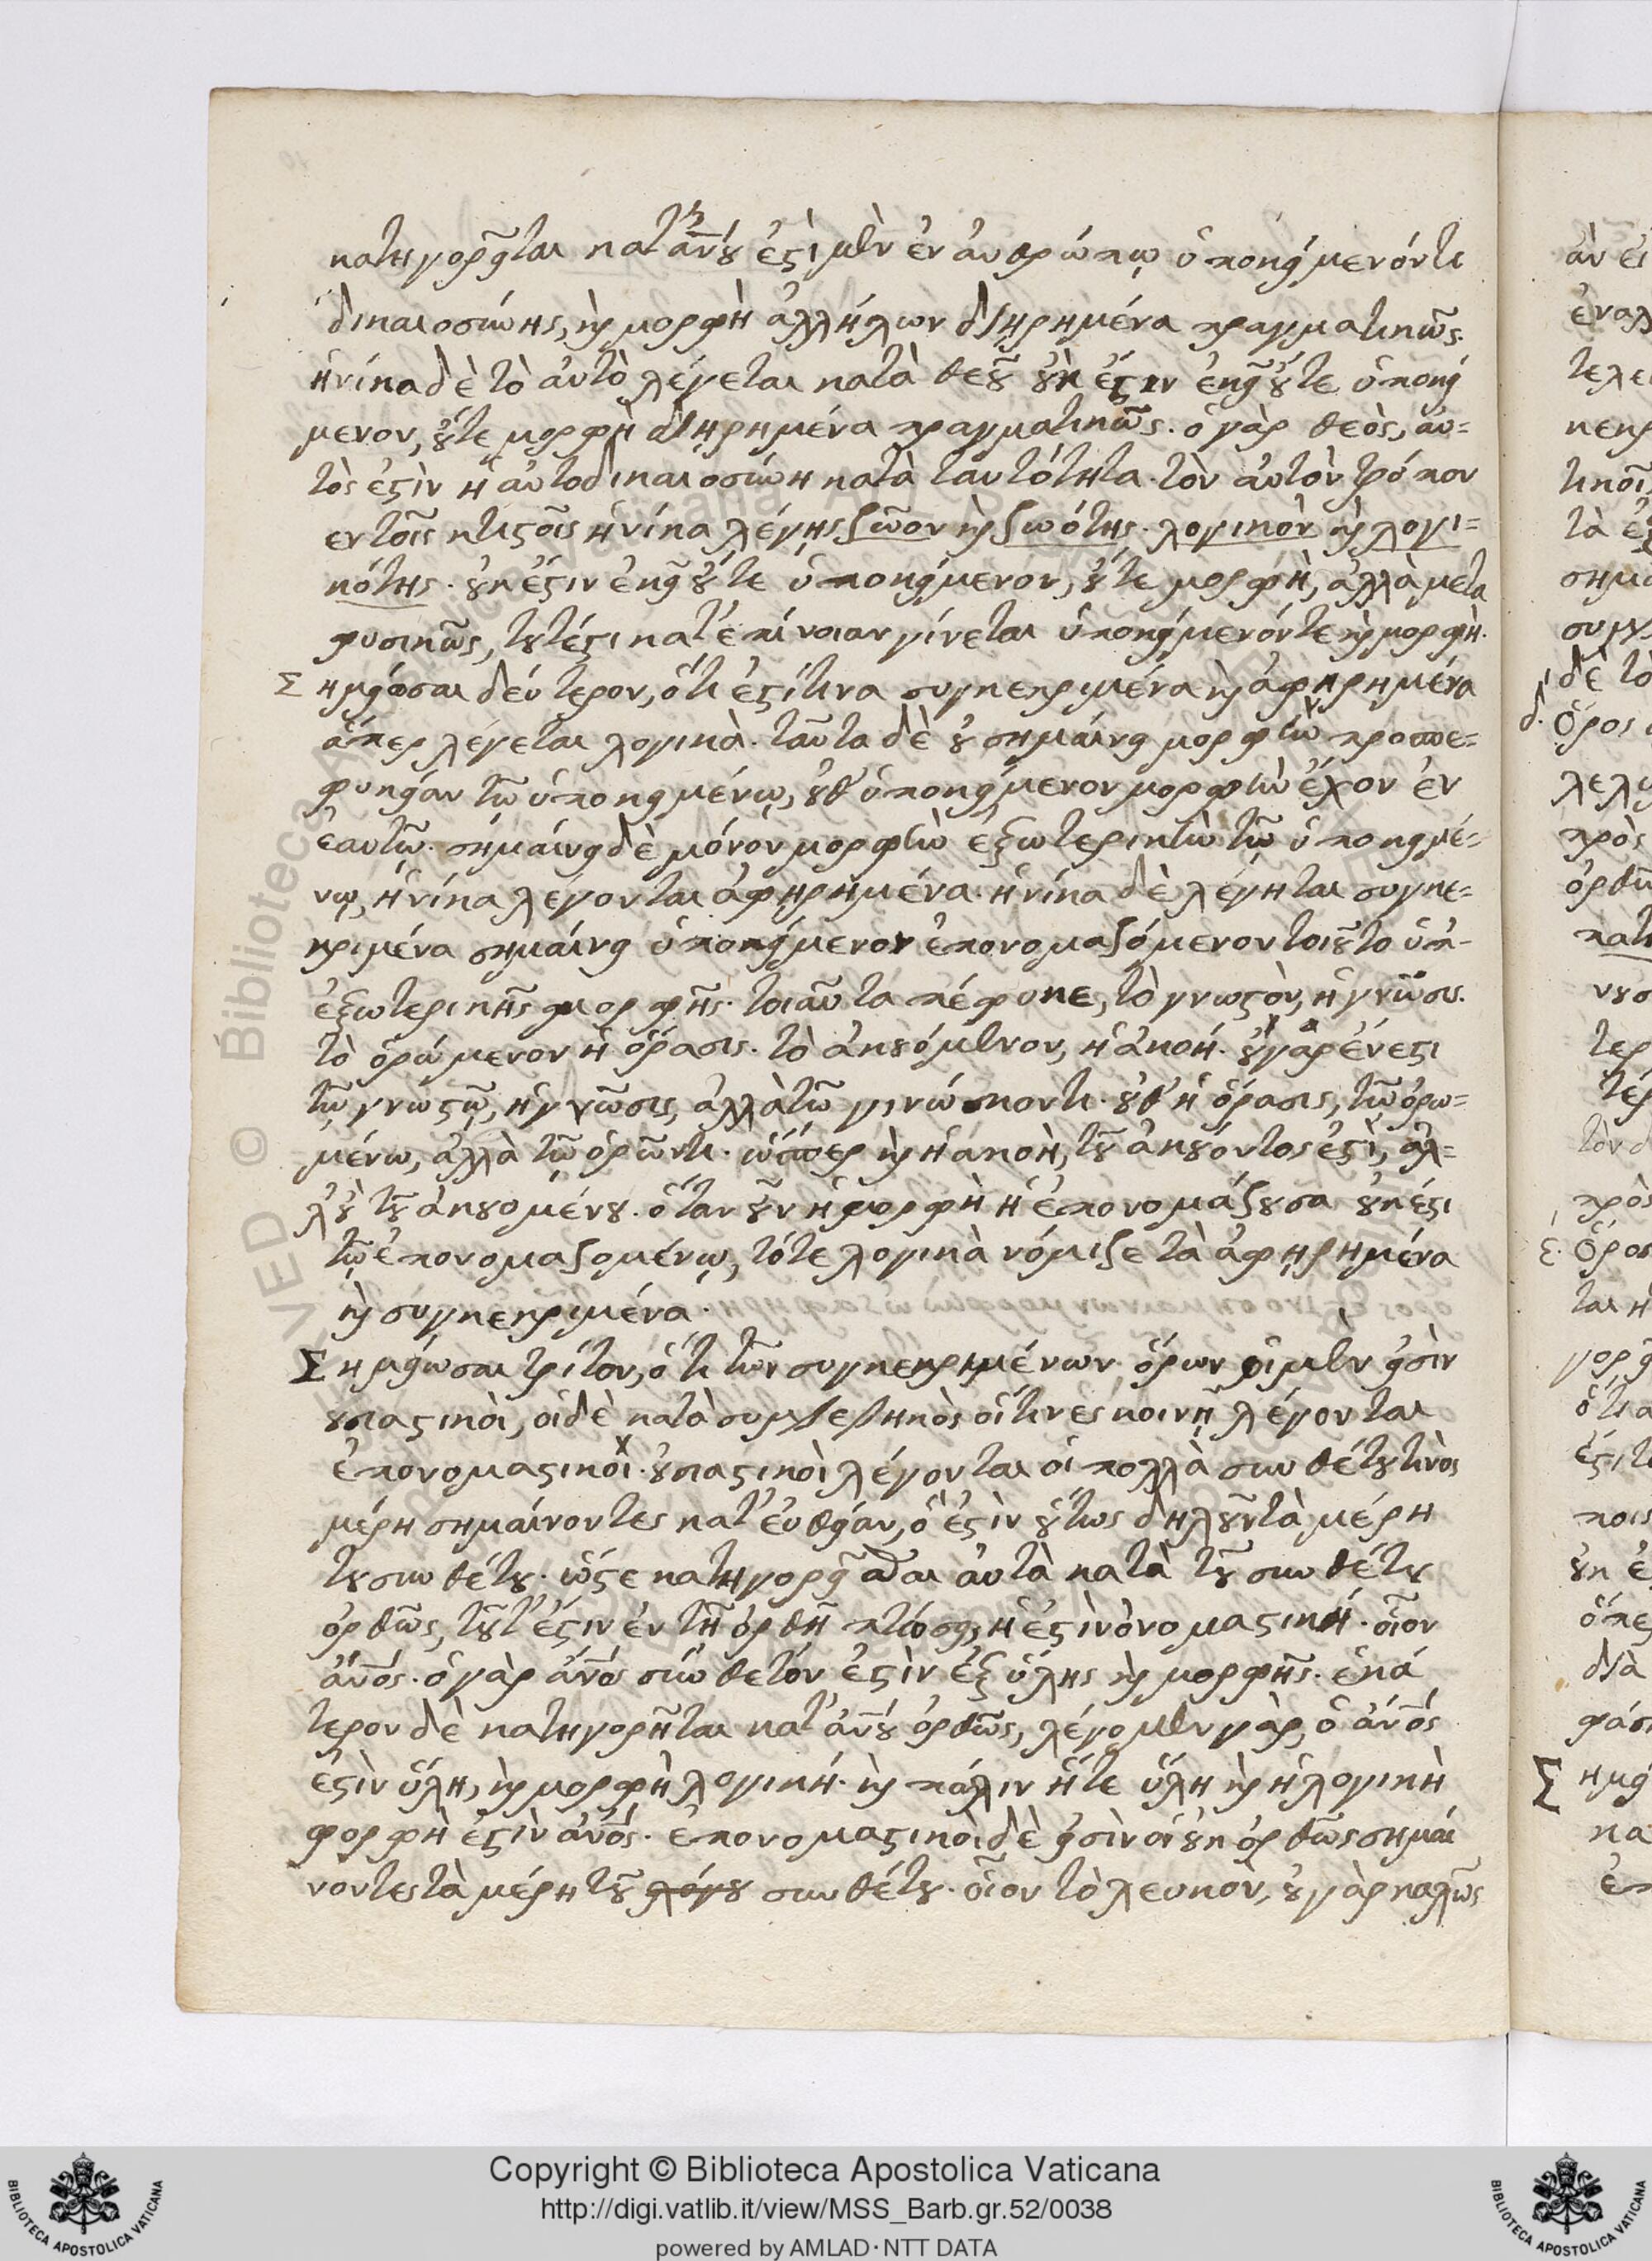 κατηγορεῖται κατ' ἀν̅ου ἐστὶ μὲν ἐν ἀνθρώπῳ ὑποκείμενόν τι
δικαιοσύνης, καὶ μορφὴ ἀλλήλων διῃρημένα πραγματικῶς.
ἡνίκα δὲ τὸ αὐτὸ λέγεται κατὰ θεοῦ οὐκ ἔστιν ἐκεῖ οὔτε ὑποκεί
μενον, οὔτε μορφὴ διῃρημένα πραγματικῶς. ὁ γὰρ θεὸς, αὐ=
τὸς ἐστὶν ἡ αὐτοδικαιοσύνη κατὰ ταυτότητα. τὸν αὐτὸν τρόπον
εν τοῖς κτιστοῖς ἡνίκα λέγῃς ζῶον καὶ ζωότης. λογικὸν καὶ λογι=
κότης. οὐκ ἔστιν ἐκεῖ οὔτε ὑποκείμενον, οὔτε μορφὴ, ἀλλὰ μετα
φυσικῶς, τουτέστι κατ' ἐπίνοιαν γίνεται ὑποκείμενόν τε καὶ μορφὴ.
Σημείωσαι δεύτερον, ὅτι ἐστί τινα συγκεκριμένα καὶ ἀφῃρημένα
ἅπερ λέγεται λογικὰ. ταῦτα δὲ οὐ σημαίνει μορφὴν προσπε=
φυκείαν τῶ ὑποκειμένῳ, οὐθ' ὑποκείμενον μορφὴν ἔχον ἐν
ἑαυτῷ. σημαίνει δὲ μόνον μορφὴν ἐξωτερικὴν τῷ ὑποκειμέ=
νῳ, ἡνίκα λεγονται ἀφῃρημένα. ἡνίκα δὲ λέγηται συγκε=
κριμένα σημαίνει ὑποκείμενον ἐπονομαζόμενον τοιοῦτο ὑπ'
ἐξωτερικῆς μορφῆς. τοιαῦτα πέφυκε, τὸ γνωστὸν, ἡ γνῶσις.
τὸ ὁρώμενον ἡ ὅρασις. τὸ ἀκουόμενον, ἡ ἀκοή. οὐ γὰρ ἔνεστι
τῷ γνωστῷ, ἡ γνῶσις, ἀλλὰ τῶ γινώσκοντι. οὐθ' ἡ ὅρασις, τῶ ὁρω=
μένω, ἀλλὰ τῷ ὁρῶντι. ὥσπερ καὶ ἡ ἀκοὴ, τοῦ ἀκούοντος ἐστὶ, ἀλ=
λ' οὐ τοῦ ἀκουομένου. ὅταν οὖν ἡ μορφὴ ἡ ἐπονομάζουσα οὐκ ἔστι
τῷ ἐπονομαζομένῳ, τότε λογικὰ νόμιζε τὰ ἀφῃρημένα
καὶ συγκεκριμένα.
Σημείωσαι τρίτον, ὅτι τῶν συγκεκριμένων ὅρων οἱ μὲν εἰσὶν
ουσιαστικοὶ, οἱ δὲ κατὰ συμβεβηκὸς οἵτινες κοινῇ λέγονται
ἐπονομαστικοὶ. οὐσιαστικοὶ λέγονται οἱ πολλὰ συνθέτου τινὸς
μέρη σημαίνοντες κατ' εὐθείαν, ὅ ἐστὶν οὕτως δηλοῦν τὰ μέρη
του συνθέτου. ὥστε κατηγορεῖσθαι αὐτὰ κατὰ τοῦ συνθέτου
ὀρθῶς, τοῦτ' ἔστιν ἐν τῇ ὀρθῇ πτώσει, ἥ ἐστὶν ὀνομαστική. οἷον
ἄν̅ος. ὁ γὰρ ἄν̅ος σύνθετόν ἐστὶν ἐξ ὕλης καὶ μορφῆς. ἑκά
τερον δὲ κατηγορῆται κατ' ἀν̅ου ὀρθῶς, λέγομεν γὰρ, ὁ ἄν̅ος
ἐστὶν ὕλη, καὶ μορφὴ λογική. καὶ πάλιν ἥτε ὕλη καὶ ἡ λογικὴ
μορφὴ ἐστὶν ἄν̅ος. ἐπονομαστικοὶ δὲ εἰσὶν οἱ οὐκ ὀρθῶς σημαί
νοντες τὰ μέρη τοῦ λόγου συνθέτου. οἷον τὸ λευκὸν, οὐ γὰρ καλῶς
Copyright © Biblioteca Apostolica Vaticana
http://digi.vatlib.it/view/MSS_Barb.gr.52/0038
powered by AMLAD·NTT DATA